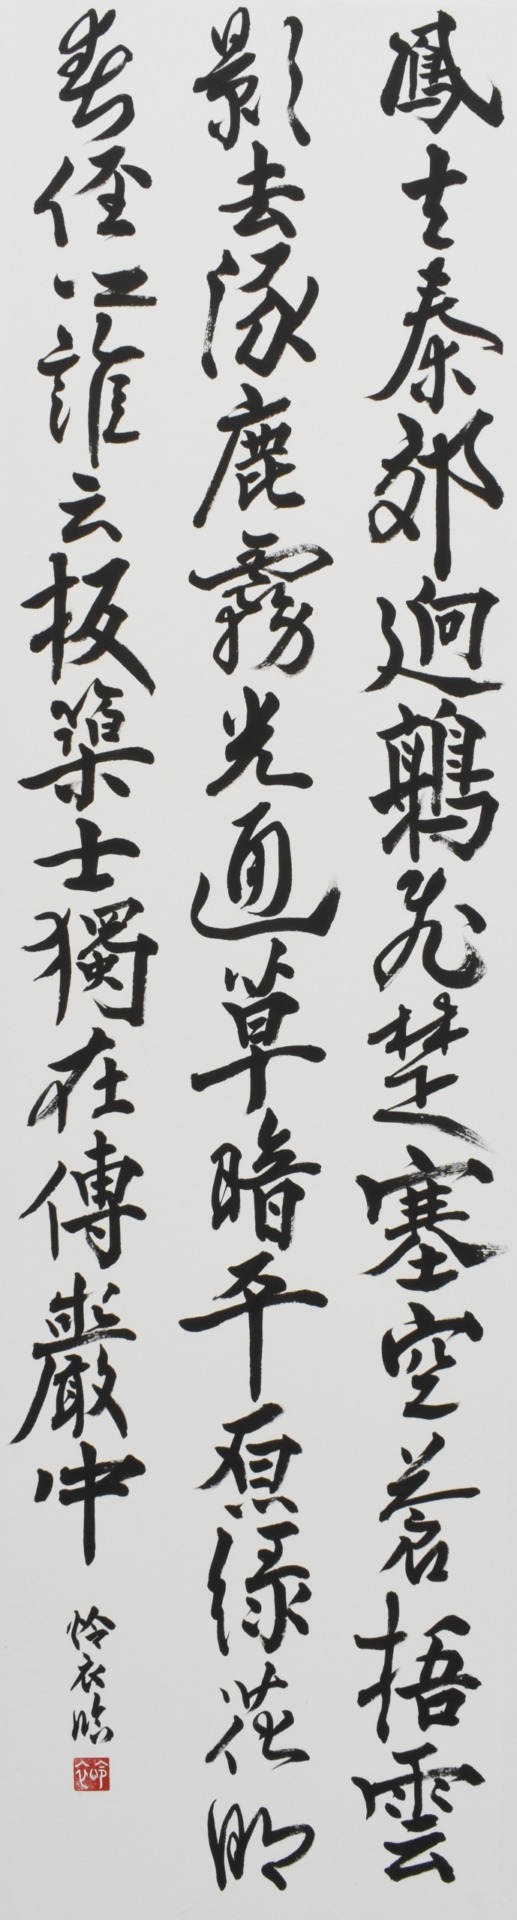 鳳出秦郊迥鶉飛楚塞空蒼梧雲
影去涿鹿霧光通草暗平原緑花明
春徑紅誰云板築士獨在傅巖中
怜衣臨